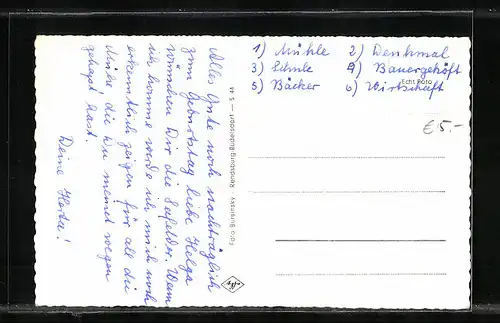 Alles Gute noch nachträglich
zum Geburtstag liebe Helga
wünschen Dir die Seefelder. Wenn
ich komme werde ich mich noch
erkenntlich zeigen für all die
Mühe die Du meinet wegen
gehapt hast.
Deine Herta!
Foto Gurinsky · Rendsburg-Büdelsdorf — S 44
1) Mühle 2) Denkmal
3) Schule 4) Bauergehöft
5) Bäcker 6) Wirtschaft
Echt Foto
€5.-